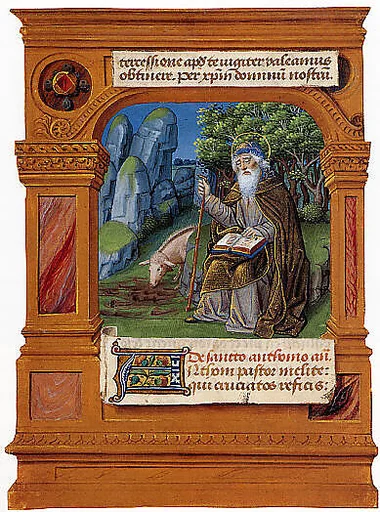 tercessione apd̄ te iugiter valeamus
obtinere. Per xp̄m dominū nostrū.
De sancto anthonio an̄.
ANthoni pastor inclite:
qui cruciatos reficis: